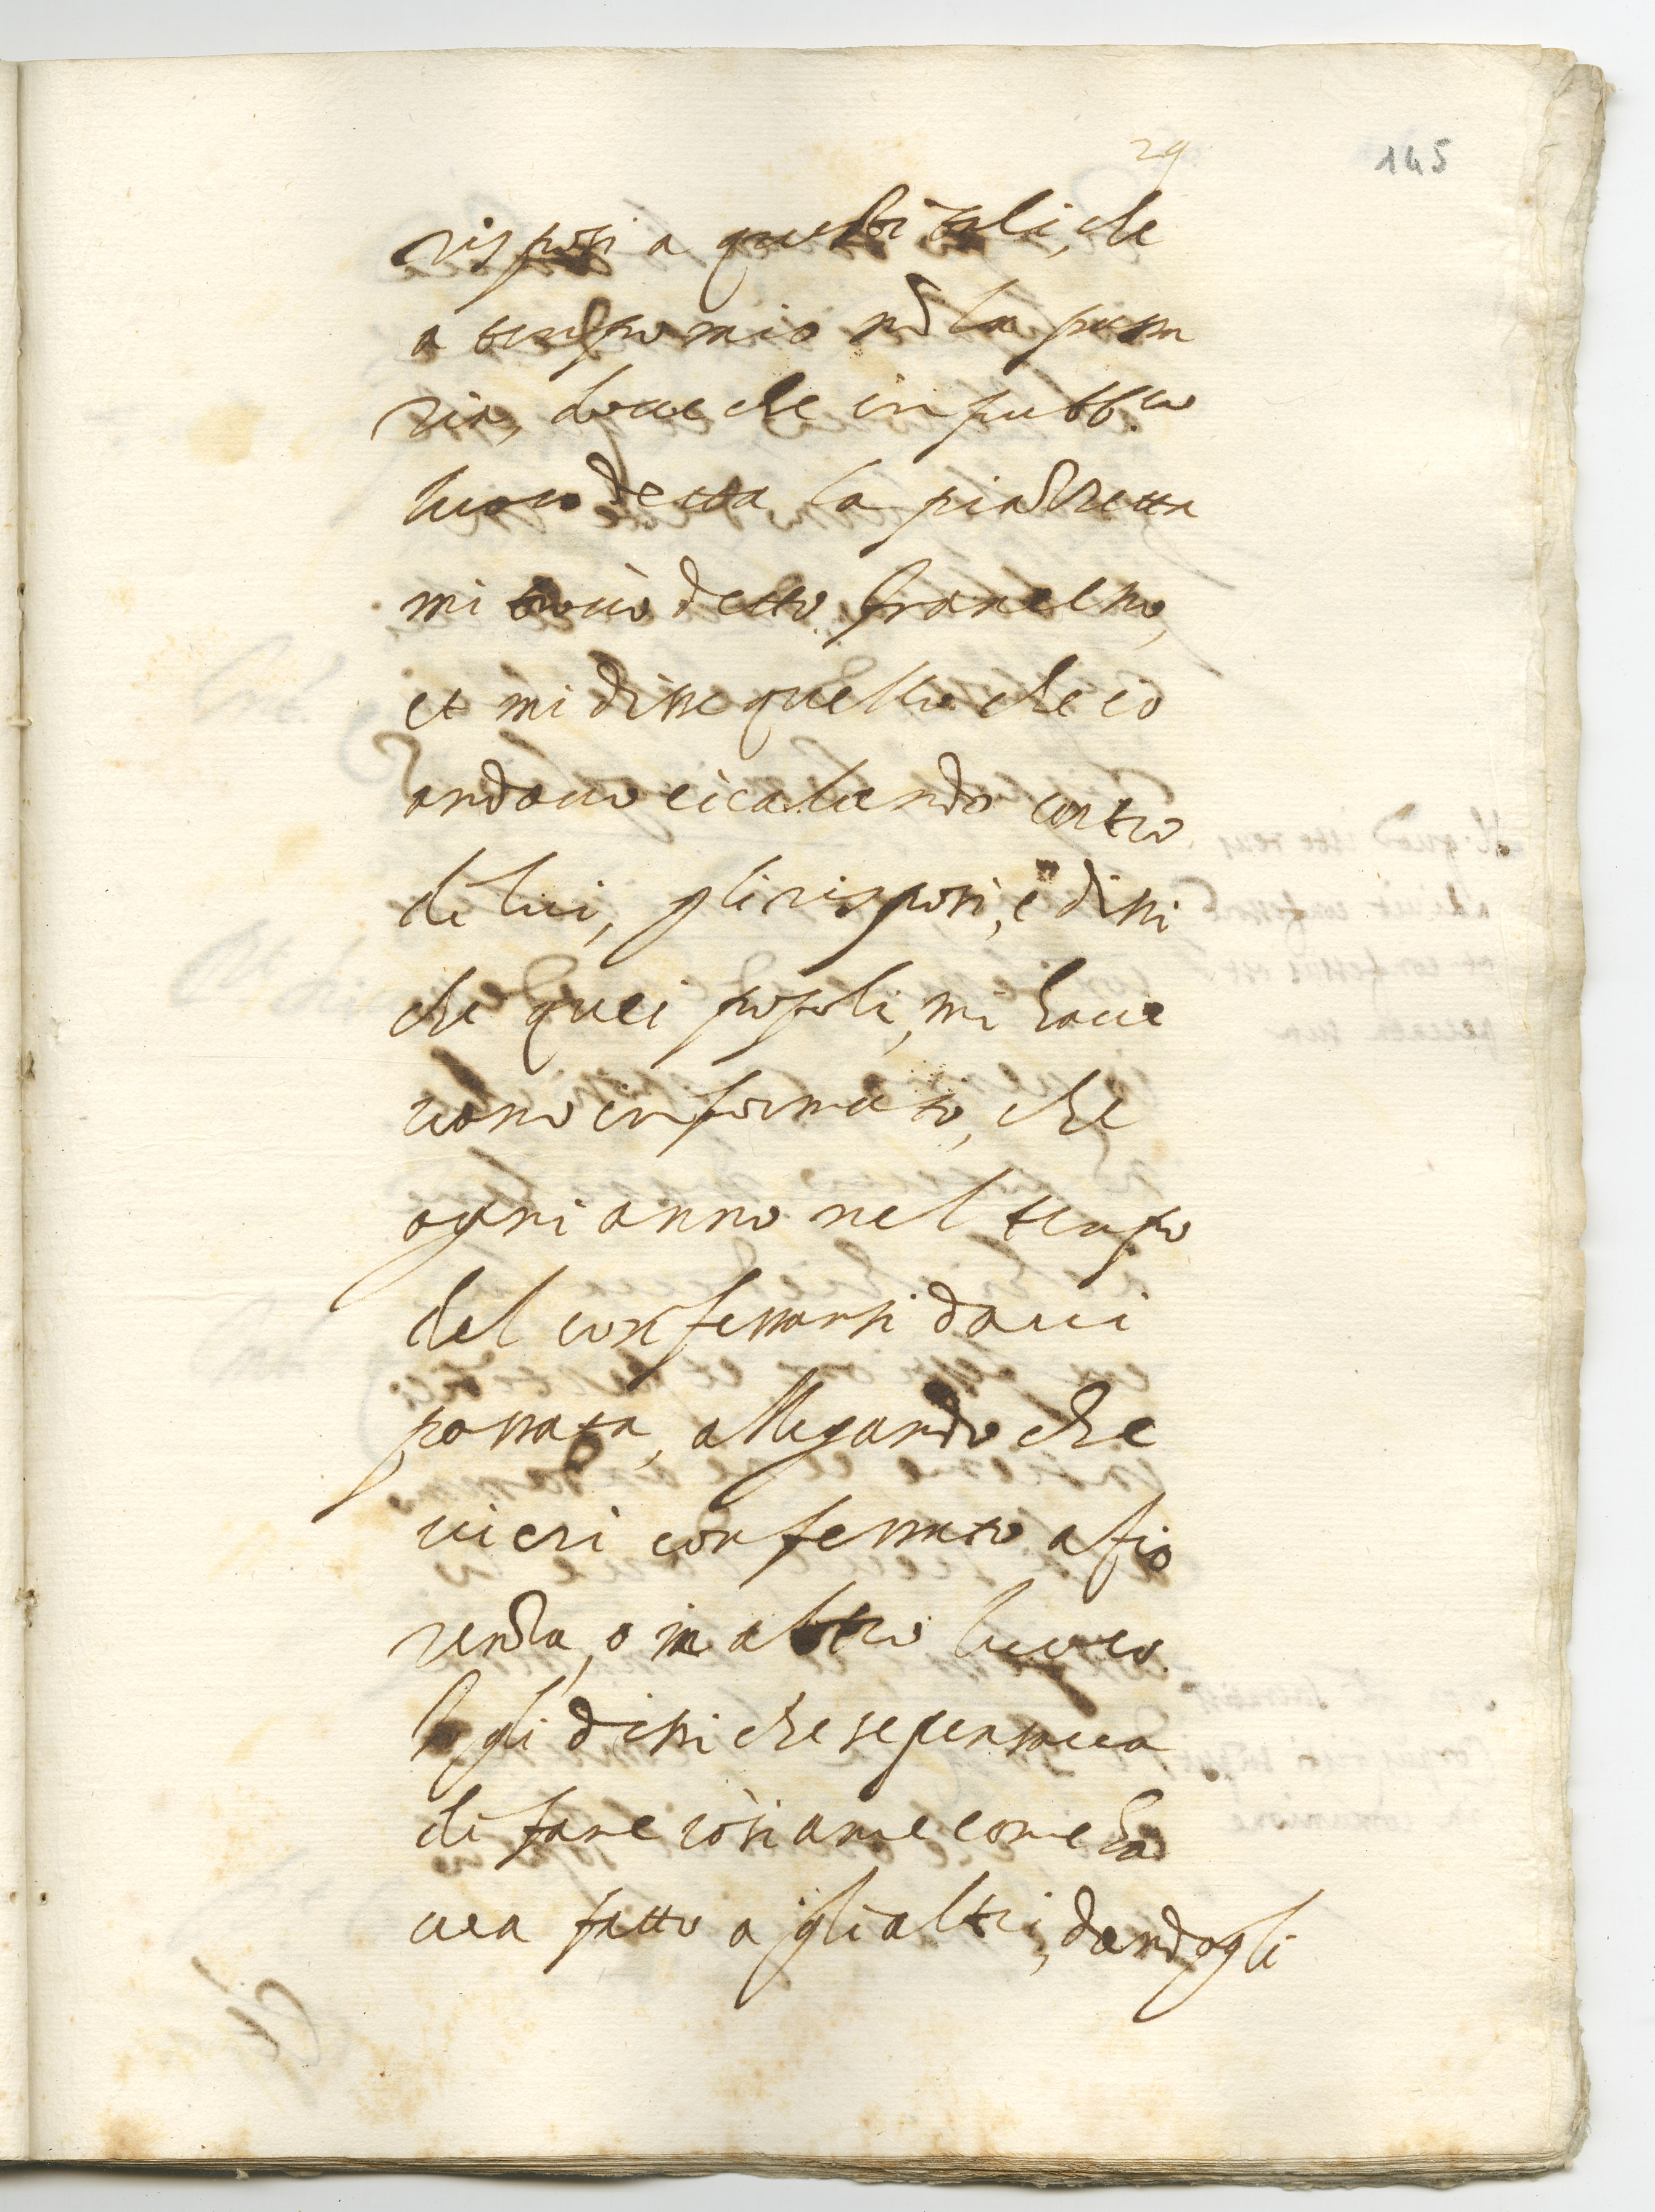 29
145
risposi a questi tali, che
a tempo mio nõ la passa
ria, doue che in pubb.co
luoco detta la piazzetta
mi trouò detto
et mi disse quello che io
andauo cicalando contro
di lui, gli risposi, e dissi
che quei popoli, mi haue
uano informato, che
ogni anno nel tempo
del confessarsi daui
passata, allegando che
ui eri confessato a fio
renza, o in altro luoco
gli dissi che se pensaua
di fare così a me come ha
uea fatto a gli altri, dandogli